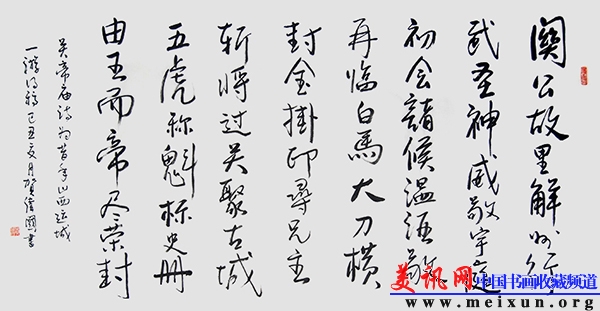 關公故里解州行
武圣神威敬宇庭
初会諸侯温酒
再临白馬大刀横
封金掛印尋兄主
斩将过关聚古城
五虎称魁标史册
由王而帝尽荣封
关帝庙诗为昔年山西运城
一游得稿己丑夏月贺伟國書
美讯网
中国书画收藏频道
www.meixun.org